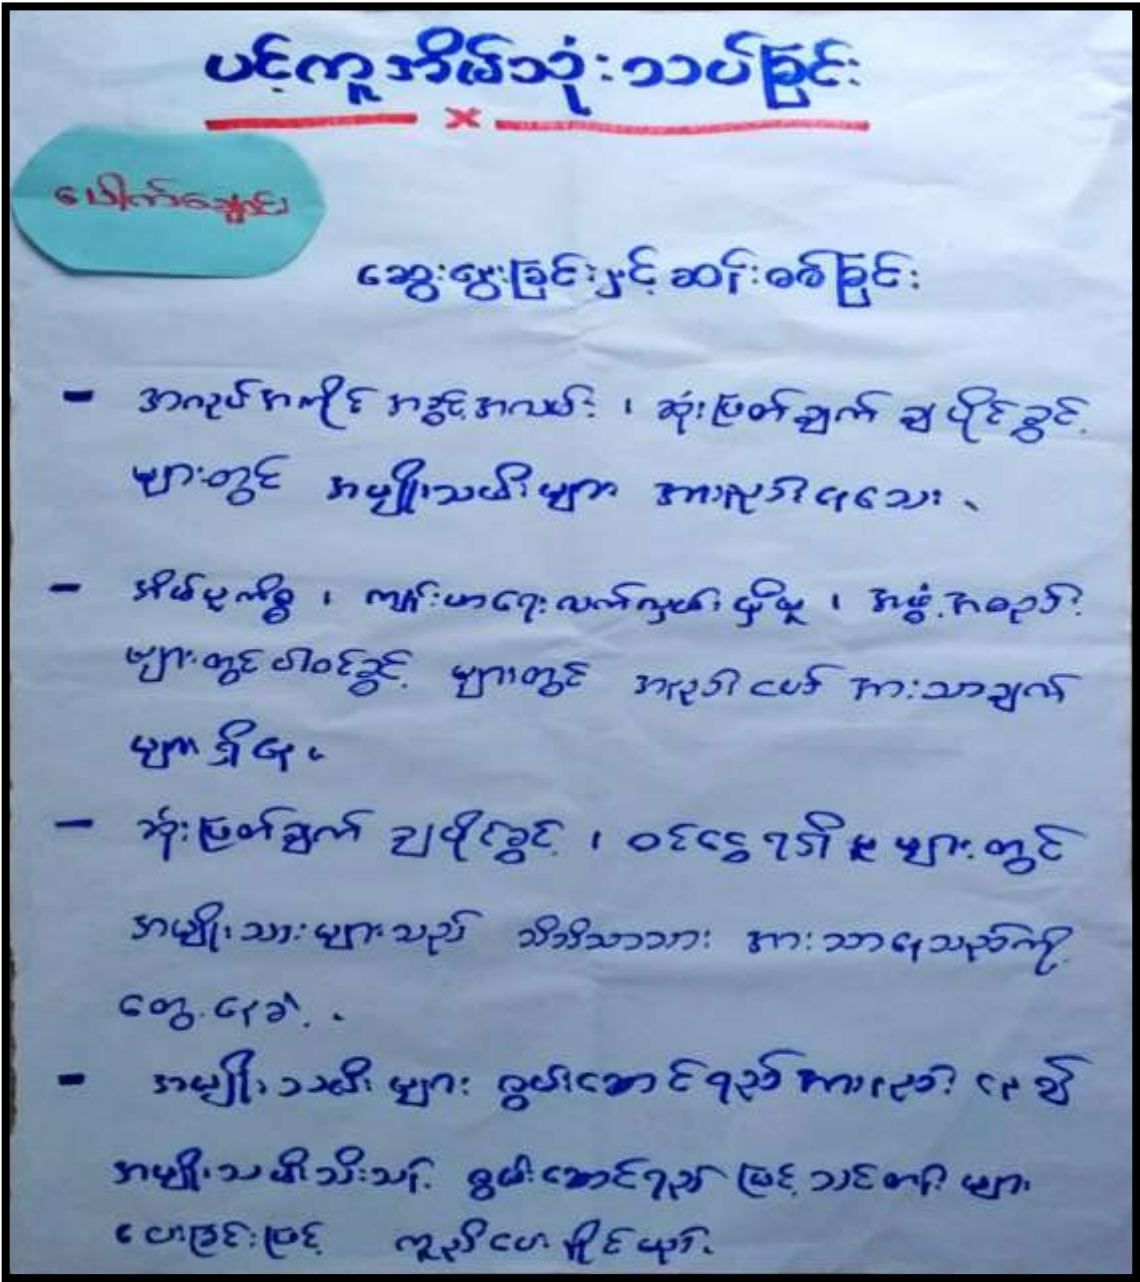 ပင့်ကူအိမ်သုံးသပ်ခြင်း
ပေါက်ချောင်း
ဆွေးနွေးခြင်းနှင့်ဆန်းစစ်ခြင်း
- အလုပ်အကိုင် အခွင့်အလမ်း ၊ ဆုံးဖြတ်ချက် ချပိုင်ခွင့်
များတွင် အမျိုးသမီးများ အားနည်းနေသေး ၊
- အိမ်မှုကိစ္စ ၊ ကျန်းမာရေးလက်လှမ်းမှီမှု ၊ အဖွဲ့အစည်း
များတွင်ပါဝင်ခွင့် များတွင် အနည်းငယ် အားသာချက်
များရှိနေ ၊
- ဆုံးဖြတ်ချက် ချပိုင်ခွင့် ၊ ဝင်ငွေရရှိမှုများတွင်
အမျိုးသားများသည် သိသိသာသာ အားသာနေသည်ကို
တွေ့နေခဲ့ ၊
- အမျိုးသမီးများ စွမ်းဆောင်ရည်အားနည်းနေ၍
အမျိုးသမီးသီးသန့် စွမ်းဆောင်ရည်မြှင့်သင်တန်းများ
ပေးခြင်းဖြင့် ကူညီပေးနိုင်မည်.